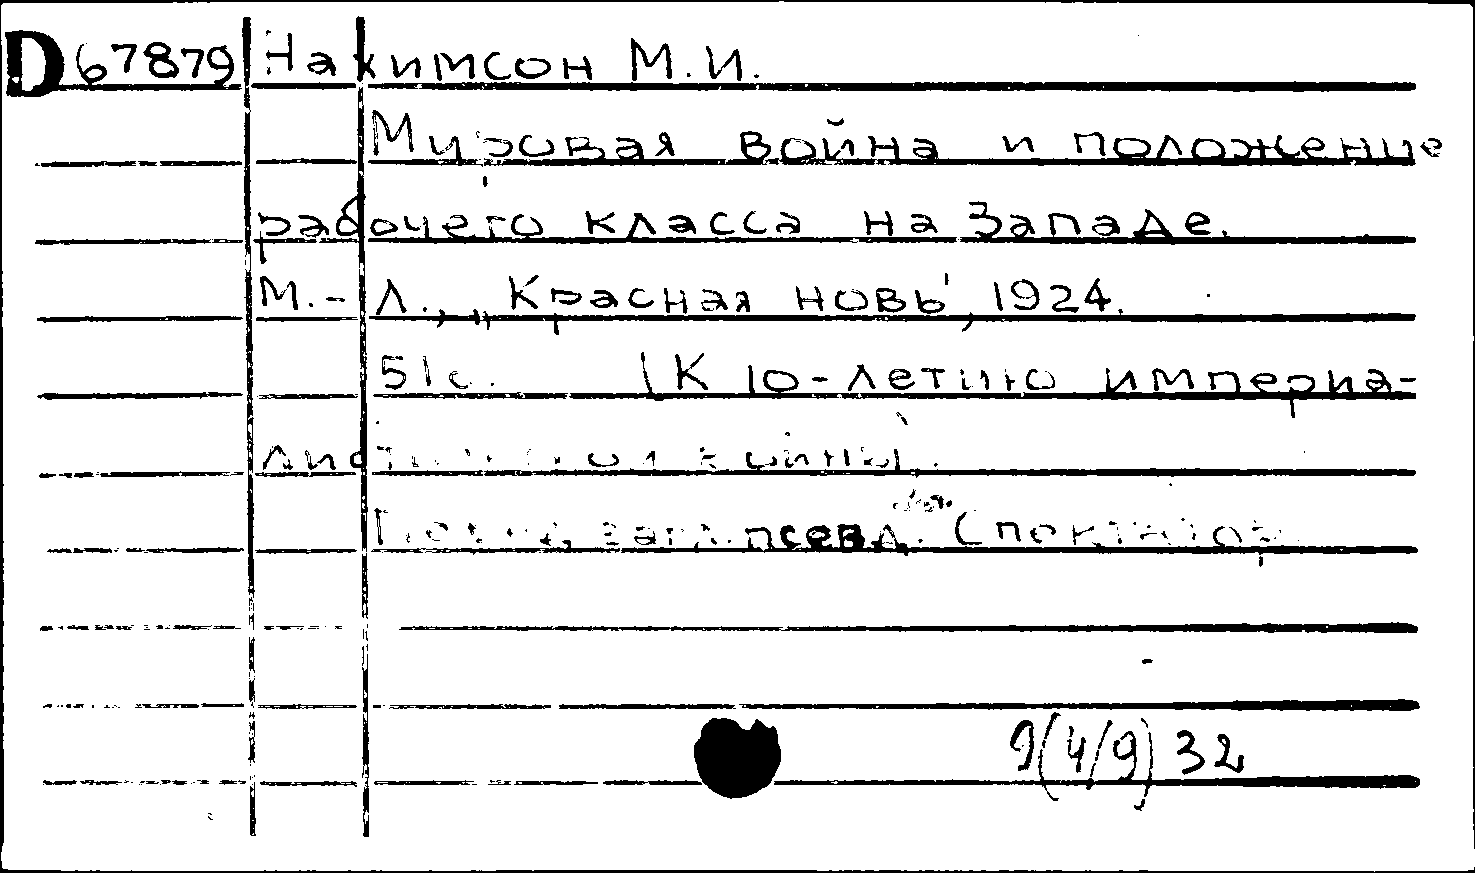 D 67879 Нахимсон М.И.
Мировая война и положение
рабочего класса на Западе.
М.-Л., „Красная новь", 1924.
51с. (К 10-летию империа-
листической войны).
Перед загл. псевд.: Спектатор.
9(4/9)32